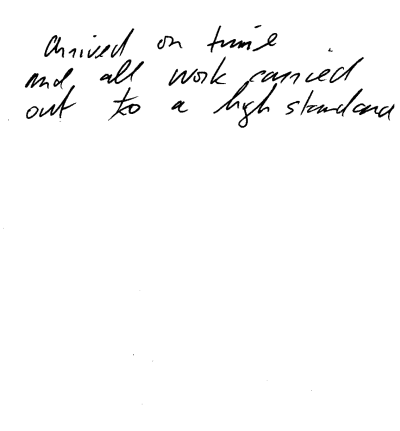 Arrived on time
and all work carried
out to a high standard